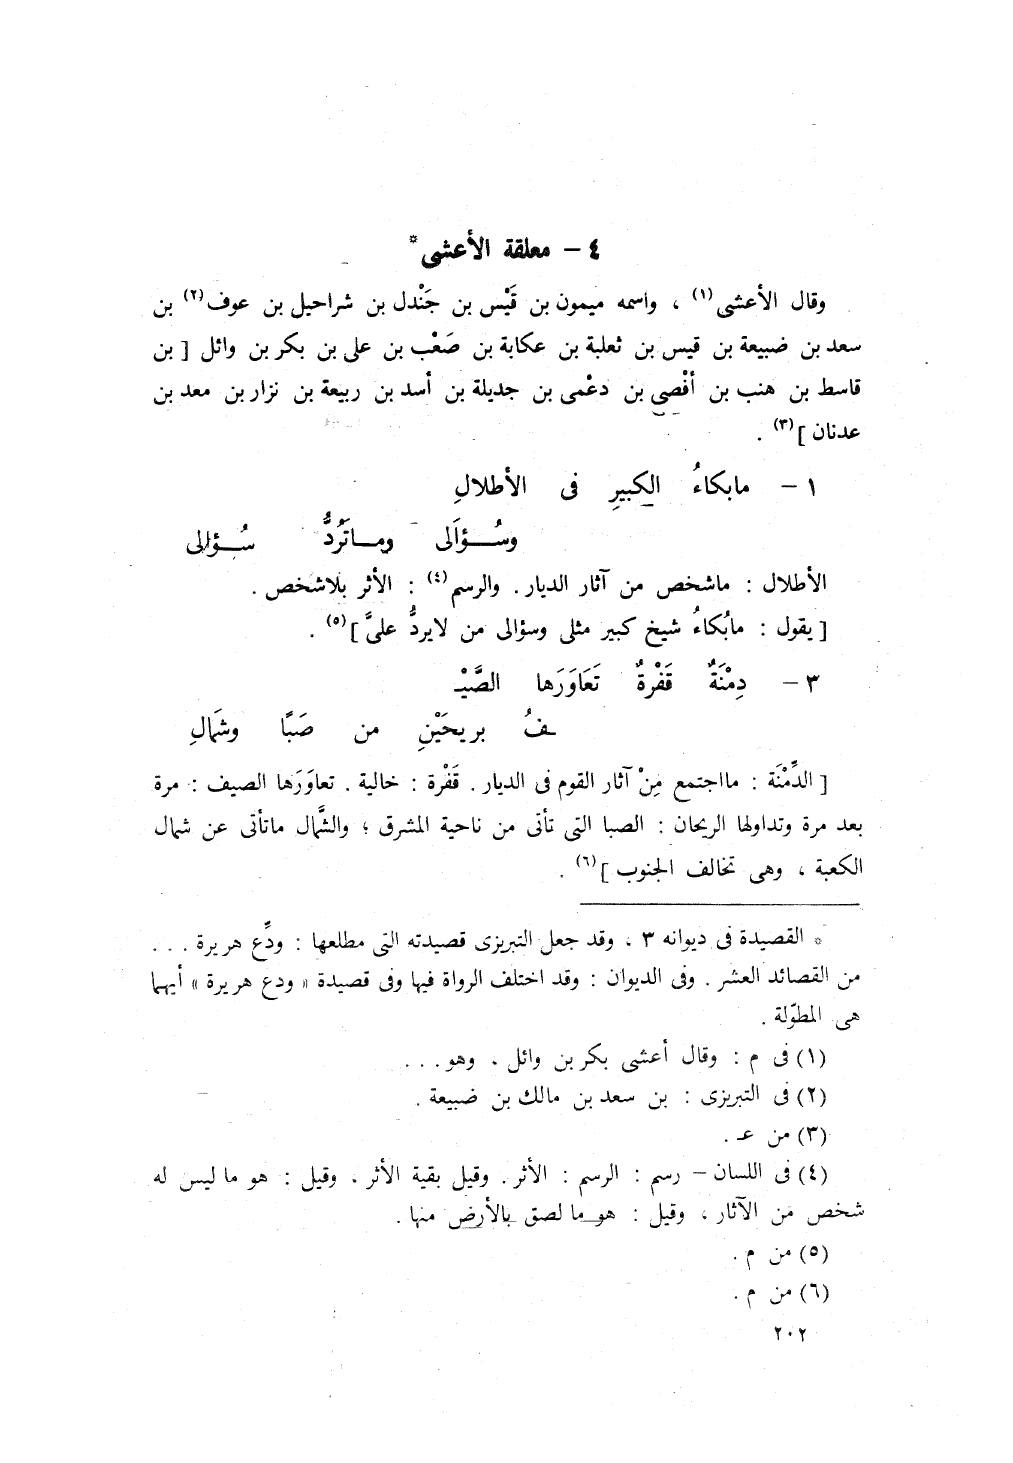 ٤ – معلقة الأعشى*
وقال الأعشى(١) ، واسمه ميمون بن قَيْس بن جَنْدل بن شراحيل بن عوف(٢) بن
سعد بن ضبيعة بن قيس بن ثعلبة بن عكابة بن صَعْب بن على بن بكر بن وائل [ بن
قاسط بن هنب بن أفْصى بن دعْمى بن جديلة بن أسد بن ربيعة بن نزار بن معد بن
عدنان ](٣) .
١ – مابكاءُ الكبيرِ فى الأطلالِ
وسُـــؤالى ومـاتَرُدُّ سُـــؤالى
الأطلال : ماشخص من آثار الديار . والرسم(٤) : الأثر بلاشخص .
[ يقول : مابُكاءُ شيخ كبير مثلى وسؤالى من لايردُّ علىَّ ](٥) .
٣ – دِمْنَةٌ قَفْرةٌ تَعَاوَرَها الصَّيْـ
ـفُ بريحَيْنِ من صَبًا وشَمَالِ
[ الدِّمْنَة : مااجتمع مِنْ آثار القوم فى الديار . قَفْرة : خالية . تعاوَرَها الصيف : مرة
بعد مرة وتداولها الريحان : الصبا التى تأتى من ناحية المشرق ؛ والشَّمال ماتأتى عن شمال
الكعبة ، وهى تخالف الجنوب ](٦) .
* القصيدة فى ديوانه ٣ ، وقد جعل التبريزى قصيدته التى مطلعها : ودِّع هريرة . . .
من القصائد العشر . وفى الديوان : وقد اختلف الرواة فيها وفى قصيدة « ودع هريرة » أيهما
هى المطوّلة .
(١) فى م : وقال أعشى بكر بن وائل ، وهو . . .
(٢) فى التبريزى : بن سعد بن مالك بن ضبيعة .
(٣) من عـ .
(٤) فى اللسان – رسم : الرسم : الأثر . وقيل بقية الأثر ، وقيل : هو ما ليس له
شخص من الآثار ، وقيل : هو ما لصق بالأرض منها .
(٥) من م .
(٦) من م .
٢٠٢